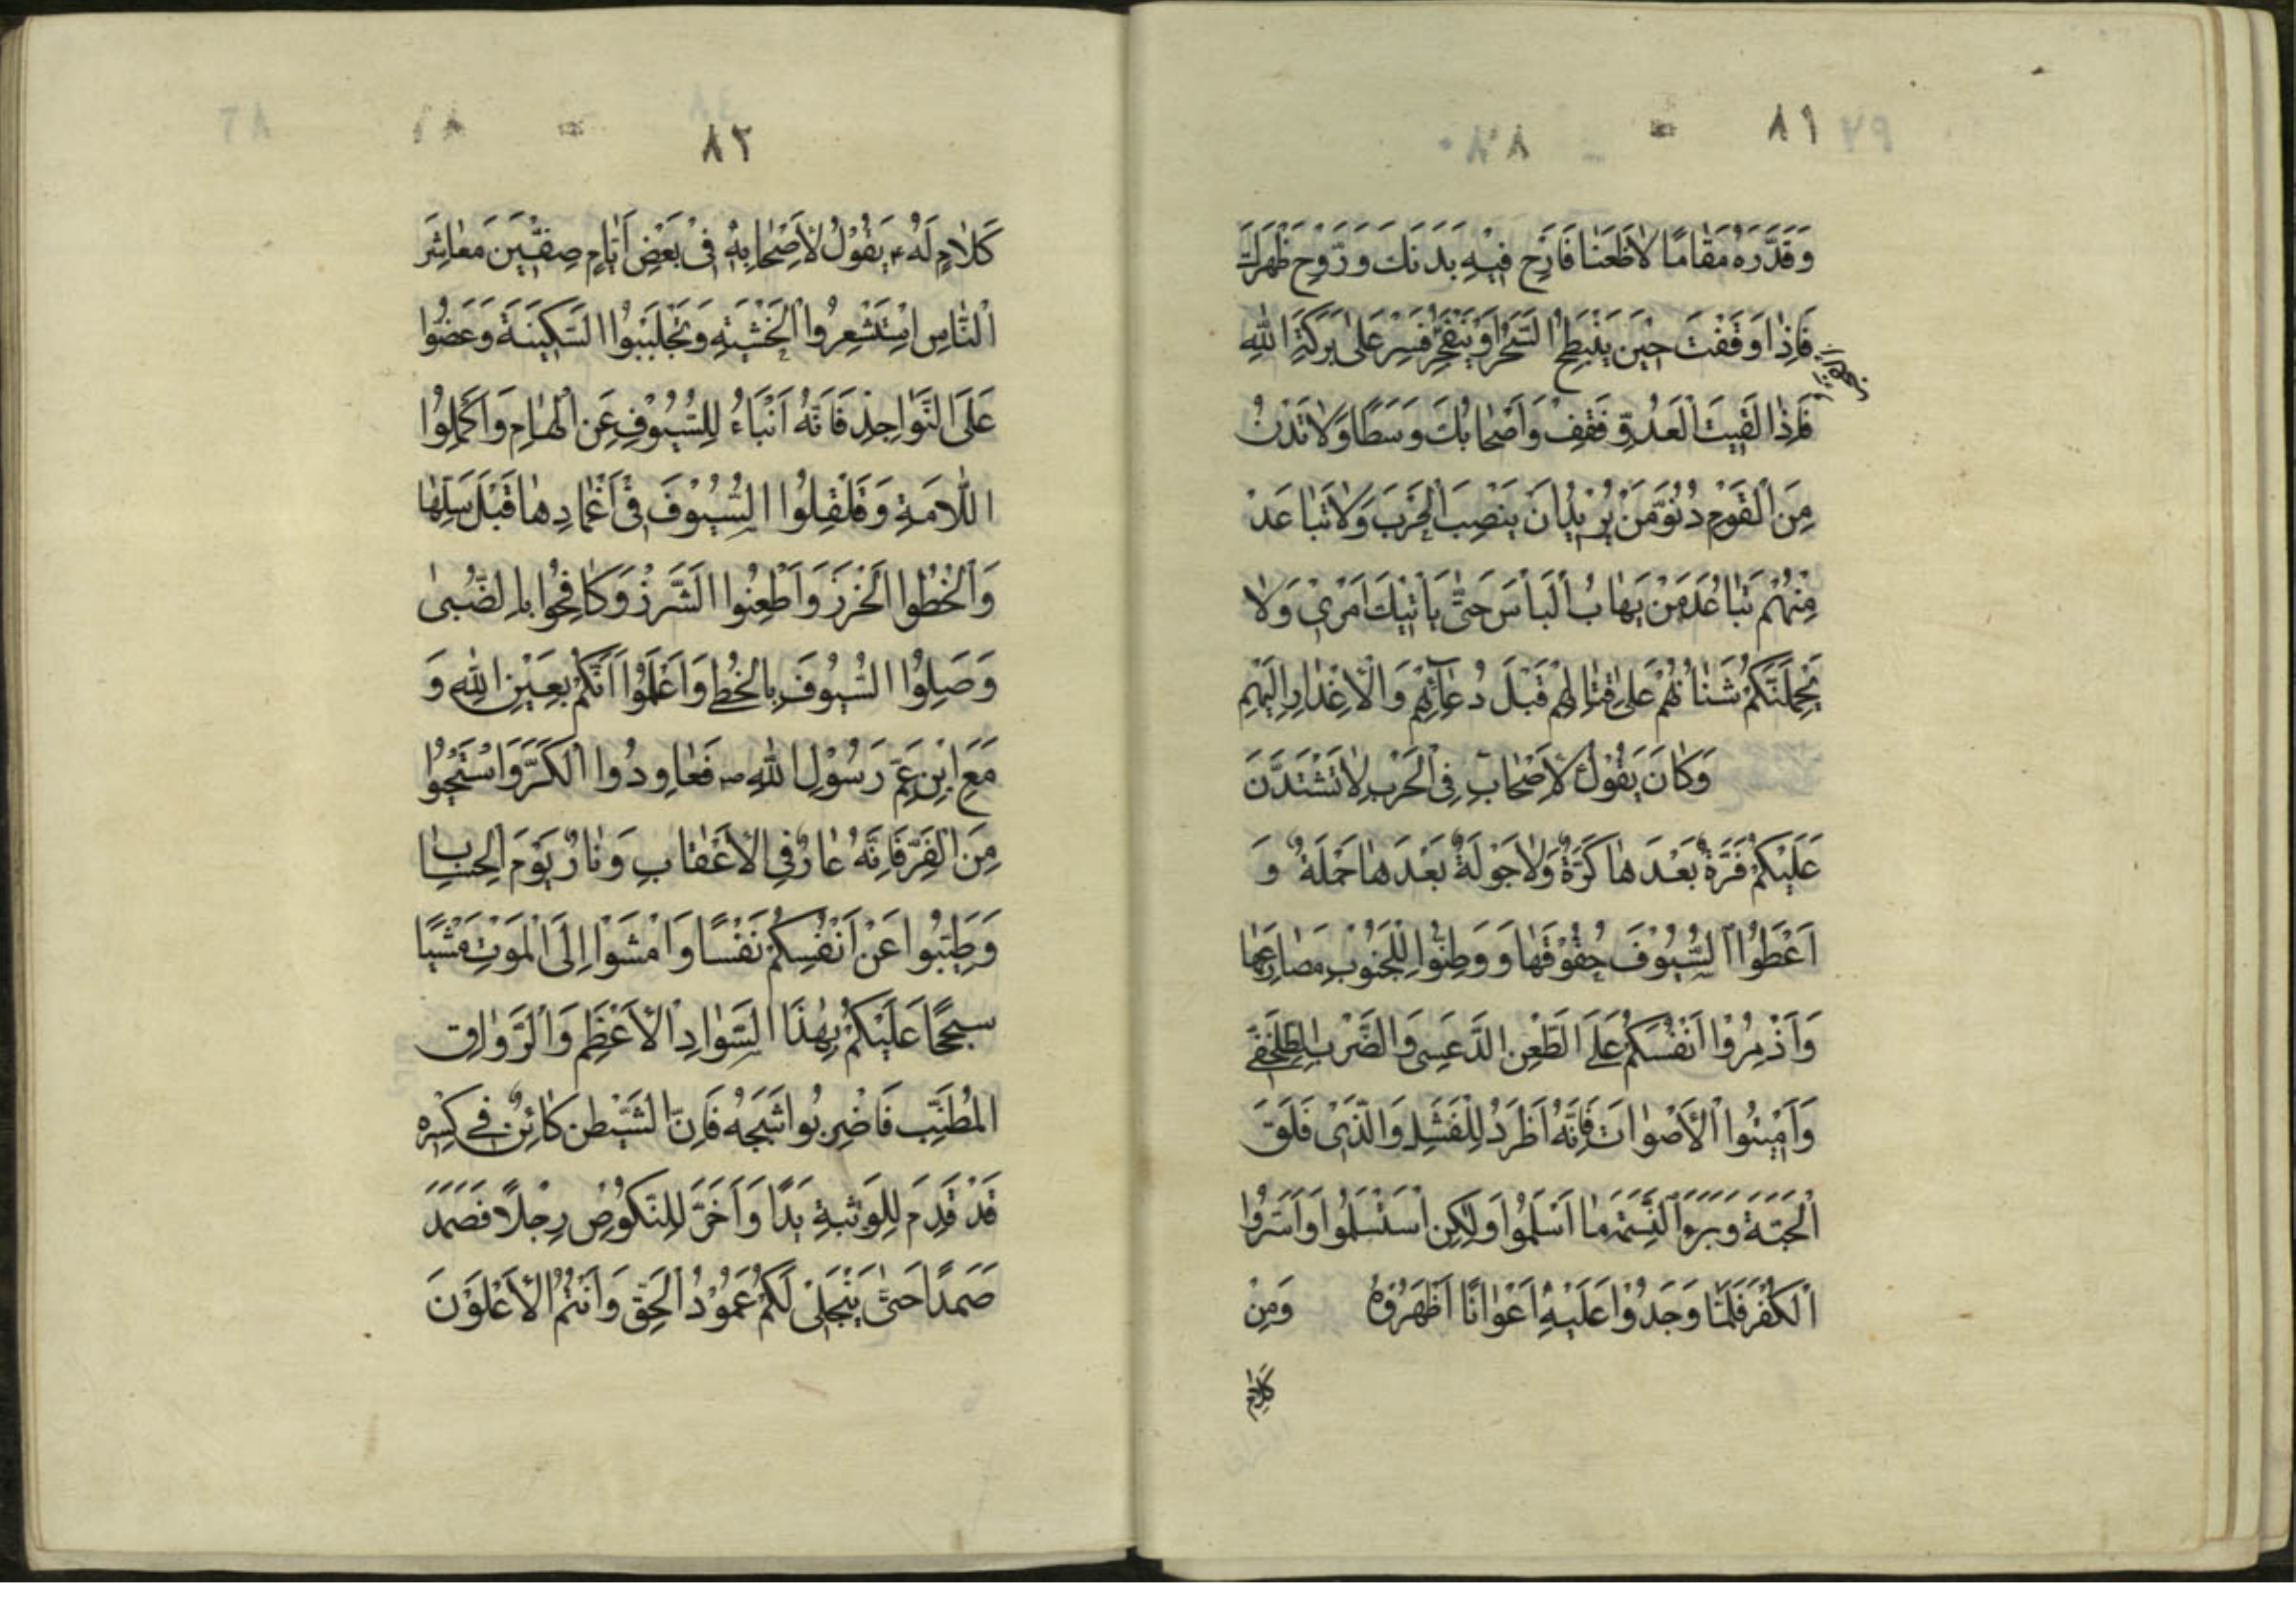 ٨١
وَقَدَّرَهُ مَقَامًا لَاظَعَنًا فَارِحْ فِيْهِ بَدَنَكَ وَرَوِّحْ ظَهْرَكَ
فَاِذَا وَقَفْتَ حِيْنَ يَنْبَطِحُ السَّحَرُ اَوْ يَنْفَجِرُ فَسِرْ عَلىٰ بَرَكَةِ اللهِ
فَاِذَا لَقِيْتَ الْعَدُوَّ فَقِفْ وَاَصْحَابُكَ وَسَطًا وَلَا تَدْنُ
مِنَ الْقَوْمِ دُنُوَّ مَنْ يُرِيْدُ اَنْ يَنْصِبَ الْحَرْبَ وَلَا تَبَاعَدْ
مِنْهُمْ تَبَاعُدَ مَنْ يَهَابُ الْبَأْسَ حَتّٰى يَأْتِيْكَ اَمْرِيْ وَلَا
يَحْمِلَنَّكُمْ شَنَاٰنُهُمْ عَلىٰ قِتَالِهِمْ قَبْلَ دُعَآئِهِمْ وَالْاِعْذَارِ اِلَيْهِمْ
وَكَانَ يَقُوْلُ لِاَصْحَابِ فِى الْحَرْبِ لَا تَشْتَدَّنَّ
عَلَيْكُمْ فَرَّةٌ بَعْدَهَا كَرَّةٌ وَلَا جَوْلَةٌ بَعْدَهَا حَمْلَةٌ وَ
اَعْطُوْا السُّيُوْفَ حُقُوْقَهَا وَ وَطِئُوْا لِلْجُنُوْبِ مَصَارِعَهَا
وَاَذْمِرُوْا اَنْفُسَكُمْ عَلَى الطَّعْنِ الدَّعْسِى وَالضَّرْبِ الطِّلَخْفِى
وَاَمِيْتُوْا الْاَصْوَاتَ فَاِنَّهُ اَطْرَدُ لِلْفَشَلِ وَالَّذِىْ فَلَقَ
الْحَبَّةَ وَبَرَءَ النَّسَمَةَ مَا اَسْلَمُوْا وَلٰكِنِ اسْتَسْلَمُوْا وَاَسَرُّوْا
الْكُفْرَ فَلَمَّا وَجَدُوْا عَلَيْهِ اَعْوَانًا اَظْهَرُوْهُ وَمِنْ
كَلَامٍ
٨٢
كَلَامٍ لَهُ ؑ يَقُوْلُ لِاَصْحَابِهِ فِىْ بَعْضِ اَيَّامِ صِفِّيْنَ مَعَاشِرَ
النَّاسِ اسْتَشْعِرُوا الْخَشْيَةَ وَتَجَلْبَبُوْا السَّكِيْنَةَ وَعَضُّوْا
عَلَى النَّوَاجِذِ فَاِنَّهُ اَنْبَاءُ لِلسُّيُوْفِ عَنِ الْهَامِ وَاَكْمِلُوْا
اللَّامَةَ وَقَلْقِلُوْا السُّيُوْفَ فِىْ اَغْمَادِهَا قَبْلَ سَلِّهَا
وَالْحُظُوا الْخَزَرَ وَاَطْعِنُوا الشَّزَرَ وَكَافِحُوْا بِالضُّبىٰ
وَصَلِوُا السُّيُوْفَ بِالْخُطٰى وَاعْلَمُوْا اَنَّكُمْ بِعَيْنِ اللهِ وَ
مَعَ ابْنِ عَمِّ رَسُوْلِ اللهِ ص فَعَاوِدُوا الْكَرَّ وَاسْتَحْيُوْا
مِنَ الْفَرِّ فَاِنَّهُ عَارٌ فِى الْاَعْقَابِ وَنَارٌ يَوْمَ الْحِسَابِ
وَطَيِّبُوْا عَنْ اَنْفُسِكُمْ نَفْسًا وَامْشَوْا اِلَى الْمَوْتِ مَشْيًا
سجحًا عَلَيْكُمْ بِهٰذَا السَّوَادِ الْاَعْظَمِ وَالرَّوَاقِ
الْمُطَنَّبِ فَاضْرِبُوا ثَبَجَهُ فَاِنَّ الشَّيْطٰنَ كَائِنٌ فِى كِسْرِهِ
قَدْ قَدَّمَ لِلْوَثْبَةِ يَدًا وَاَخَّرَ لِلنُّكُوْصِ رِجْلًا فَصَمَدَ
صَمَدًا حَتّٰى يَنْجَلِىَ لَكُمْ عَمُوْدُ الْحَقِّ وَاَنْتُمُ الْاَعْلَوْنَ